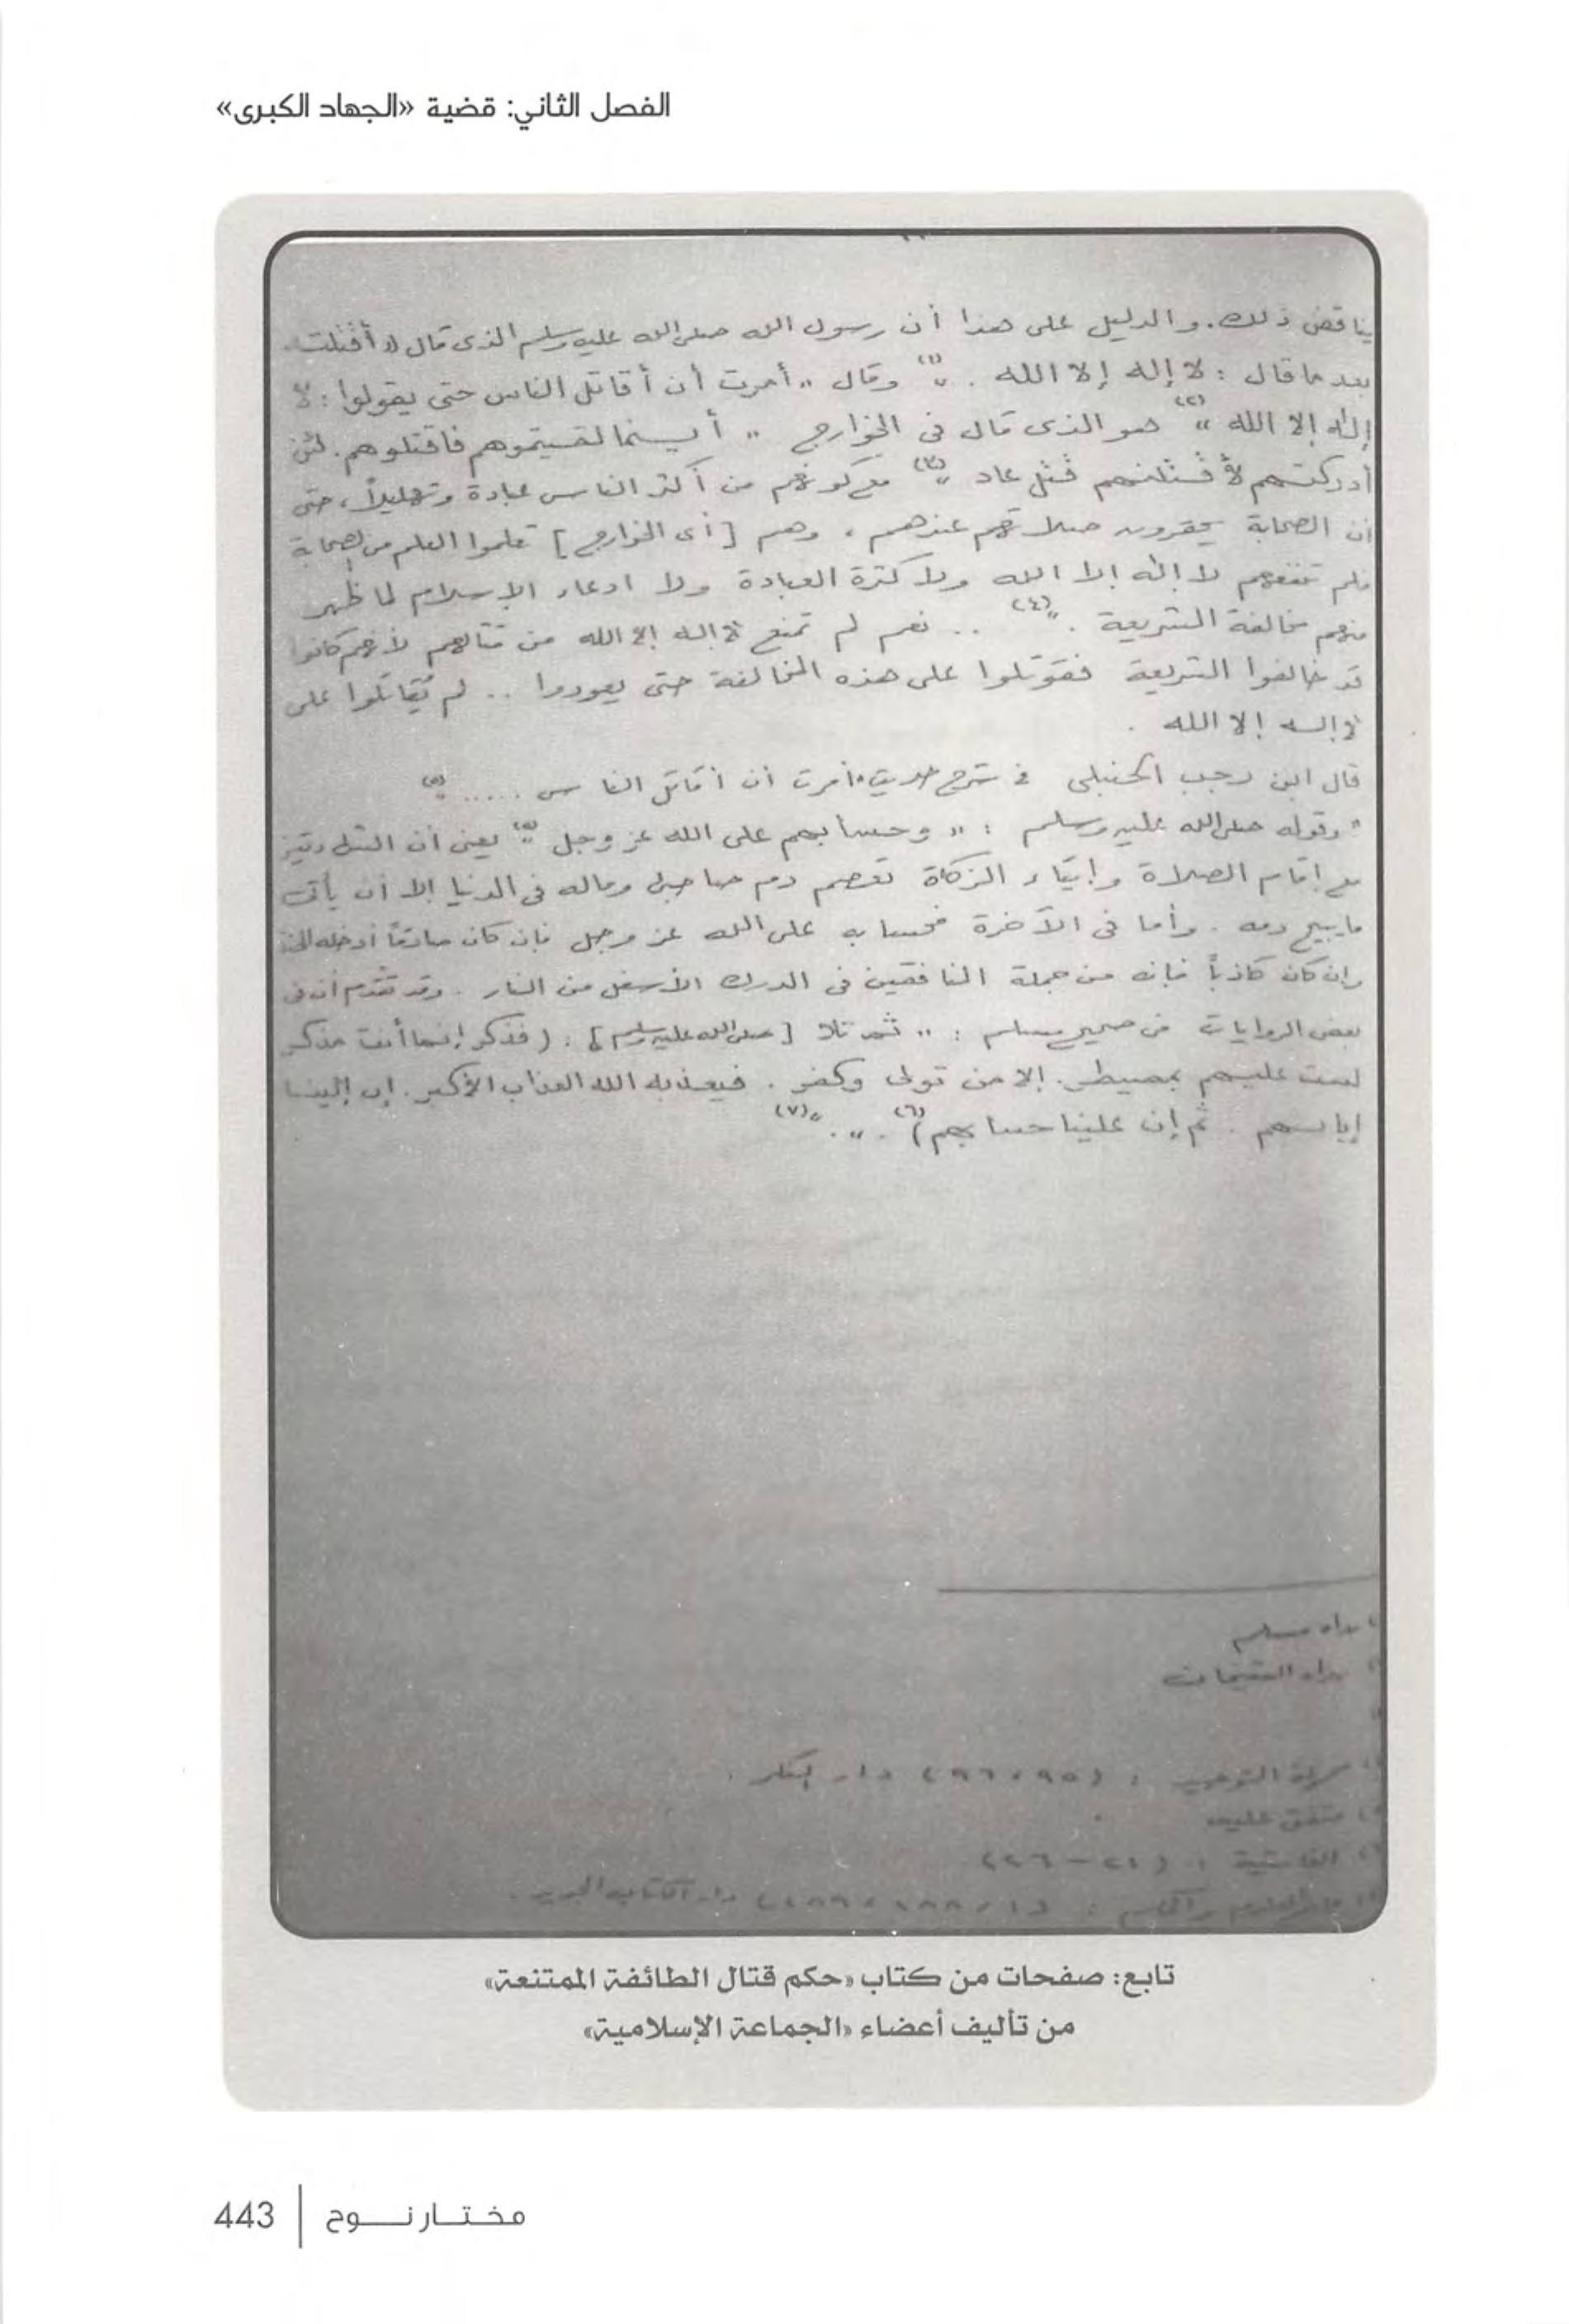 الفصل الثاني: قضية «الجهاد الكبرى»
يناقض ذلك. والدليل على هذا أن رسول الله صلى الله عليه وسلم الذى قال « أقتلته
بعد ما قال : لا إله إلا الله . »(١) وقال « أمرت أن أقاتل الناس حتى يقولوا : لا
إله إلا الله »(٢) هو الذى قال فى الخوارج « أينما لقيتموهم فاقتلوهم. لئن
أدركتهم لأقتلنهم قتل عاد »(٣) مع كونهم من أكثر الناس عبادة وتهليلاً، حتى
أن الصحابة يحقرون صلاتهم عندهم ، وهم [ أى الخوارج ] تعلموا العلم من الصحابة
فلم تنفعهم لا إله إلا الله ولا كثرة العبادة ولا ادعاء الإسلام لما ظهر
منهم مخالفة الشريعة . »(٤) .. نعم لم تمنع لا إله إلا الله من قتالهم لأنهم كانوا
قد خالفوا الشريعة فقوتلوا على هذه المخالفة حتى يعودوا .. لم يُقاتلوا على
لا إله إلا الله .
قال ابن رجب الحنبلى فى شرح حديث « أمرت أن أقاتل الناس ..... »(٥)
« وقوله صلى الله عليه وسلم : « وحسابهم على الله عز وجل »(٥) يعنى أن الشهادتين
مع إقام الصلاة وإيتاء الزكاة تعصم دم صاحبها وماله فى الدنيا إلا أن يأتى
ما يبيح دمه . وأما فى الآخرة فحسابه على الله عز وجل فإن كان صادقاً أدخله الجنة
وإن كان كاذباً فإنه من جملة المنافقين فى الدرك الأسفل من النار . وقد تقدم أن فى
بعض الروايات فى صحيح مسلم : « ثم تلا [ صلى الله عليه وسلم ] : ( فذكر إنما أنت مذكر
لست عليهم بمصيطر. إلا من تولى وكفر . فيعذبه الله العذاب الأكبر. إن إلينا
إيابهم . ثم إن علينا حسابهم)(٦) . » . »(٧)
رواه مسلم
رواه الشيخان
التوحيد : (٩٥، ٩٦) دار الفكر .
متفق عليه
الغاشية : (٢١ - ٢٦)
العلوم والحكم : دار الكتاب
تابع: صفحات من كتاب «حكم قتال الطائفة الممتنعة»
من تأليف أعضاء «الجماعة الإسلامية»
مختار نوح | 443